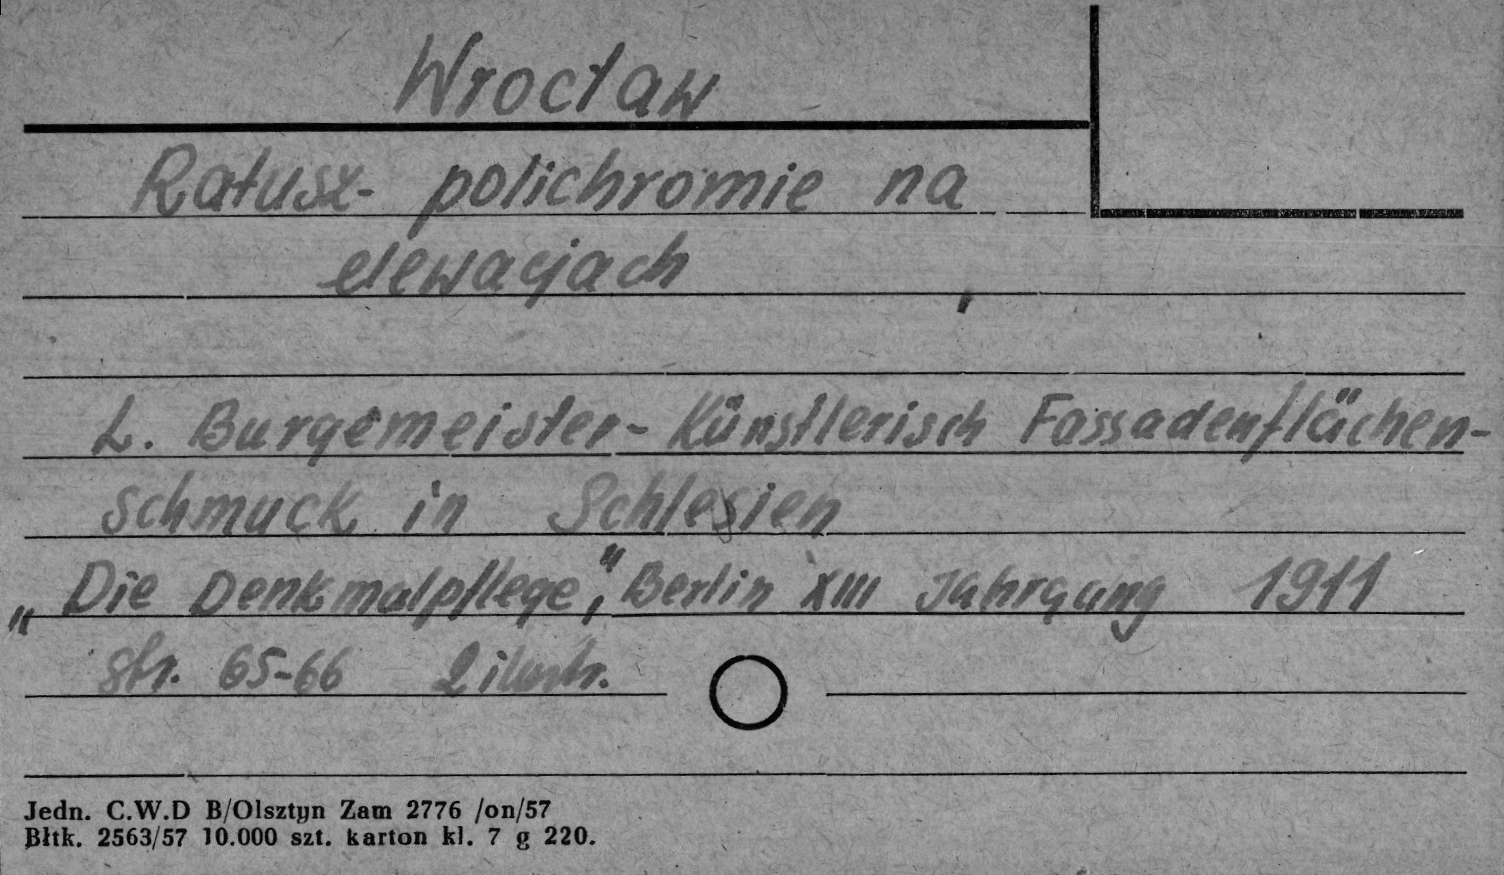 Wrocław
Ratusz- polichromie na
elewacjach
L. Burgemeister- Künstlerisch Fassadenflächen-
schmuck in Schlesien
„Die Denkmalpflege," Berlin XIII Jahrgang 1911
str. 65-66 2 ilustr.
Jedn. C.W.D B/Olsztyn Zam 2776 /on/57
Błtk. 2563/57 10.000 szt. karton kl. 7 g 220.